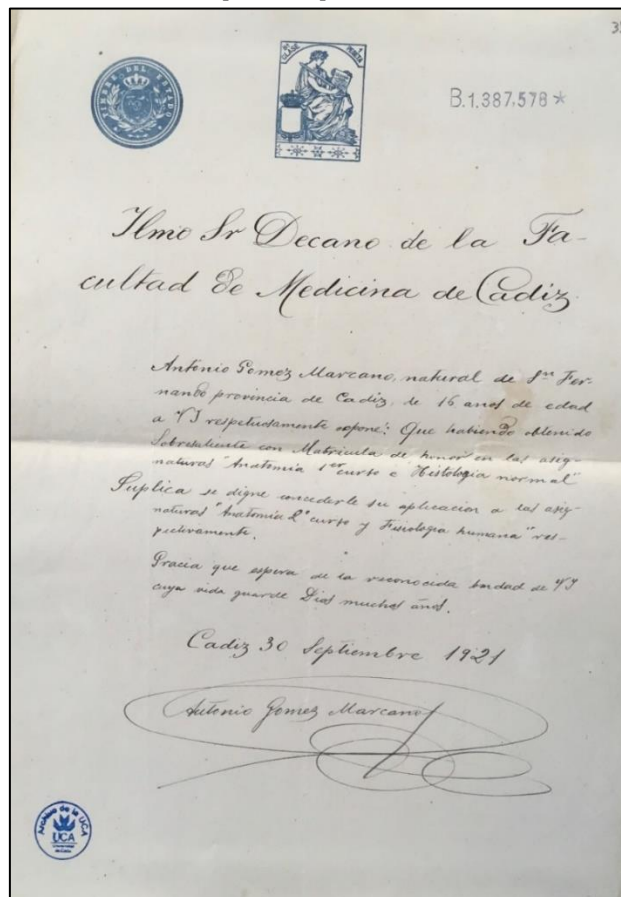 3
TIMBRE DEL ESTADO
CLASE
B.1.387.578*
Ilmo Sr Decano de la Fa-
cultad de Medicina de Cadiz
Antonio Gomez Marcano, natural de Sn Fer-
nando provincia de Cadiz, de 16 anos de edad
a VI respetuosamente expone: Que habiendo obtenido
Sobresaliente con Matricula de honor en las asig-
naturas "Anatomia 1er curso e Histologia normal"
Suplica se digne concederle su aplicacion a las asig-
naturas "Anatomia 2º curso y Fisiologia humana" res-
pectivamente.
Gracia que espera de la reconocida bondad de VI
cuya vida guarde Dios muchos anos.
Cadiz 30 Septiembre 1921
Antonio Gomez Marcano
Archivo de la UCA
UCA